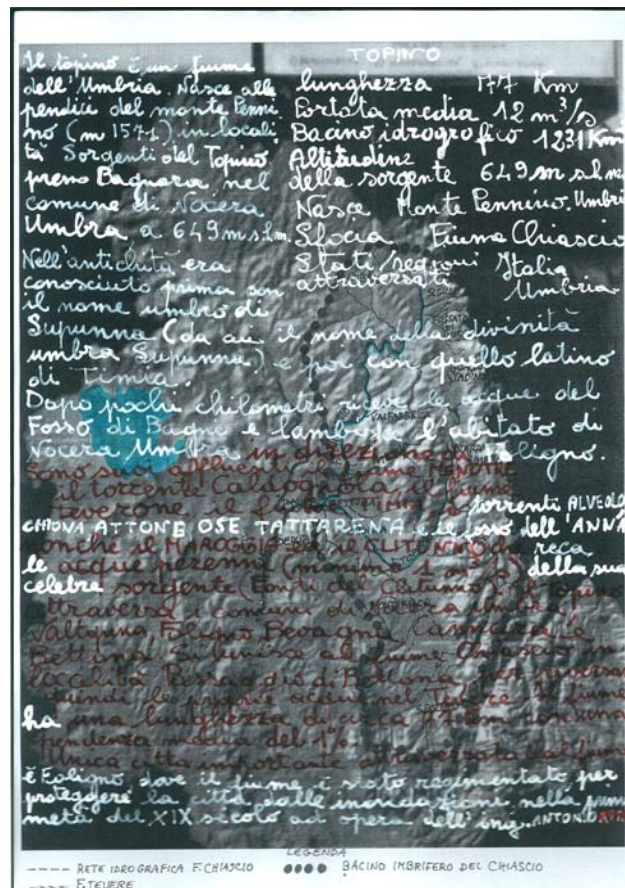 TOPINO
Il topino è un fiume
dell'Umbria. Nasce alle
pendici del monte Penni
no (m 1571) in locali
tà Sorgenti del Topino
presso Bagnara, nel
comune di Nocera
Umbra a 649 m s.l.m.
Nell'antichità era
conosciuto prima con
il nome umbro di
lunghezza 77 Km
Portata media 12 m³/s
Bacino idrografico 1231 Km²
Altitudine
della sorgente 649 m s.l.m.
Nasce Monte Pennino. Umbria
Sfocia Fiume Chiascio
Stati/regioni Italia
attraversati Umbria
Supunna (da cui il nome della divinità
umbra Supunna) e poi con quello latino
di Timia.
Dopo pochi chilometri riceve le acque del
Fosso di Bagni e lambisce l'abitato di
Nocera Umbra in direzione di Foligno.
Sono suoi affluenti il fiume MENOTRE
il torrente Caldognola il fiume
Teverone il fiume TIMIA i torrenti ALVEOLO
CHIONA ATTONE OSE TATTARENA e il fosso dell'ANNA
onche il MAROGGIA ed il CLITUNNO che reca
le acque perenni (minimo 1 m³/s) della sua
celebre sorgente (Fonti del Clitunno). Il Topino
attraversa i comuni di Nocera Umbra
Valtopina, Foligno, Bevagna, Cannara e
Bettona. Si unisce al fiume Chiascio in
località Passaggio di Bettona per riversare
quindi le proprie acque nel Tevere. Il fiume
ha una lunghezza di circa 77 km con una
pendenza media del 1%.
Unica città importante attraversata dal fiume
è Foligno dove il fiume è stato regimentato per
proteggere la città dalle inondazioni nella prima
metà del XIX secolo ad opera dell'ing. ANTONIO
VALFABBRICA
LEGENDA
---- RETE IDROGRAFICA F. CHIASCIO
●●●● BACINO IMBRIFERO DEL CHIASCIO
F. TEVERE